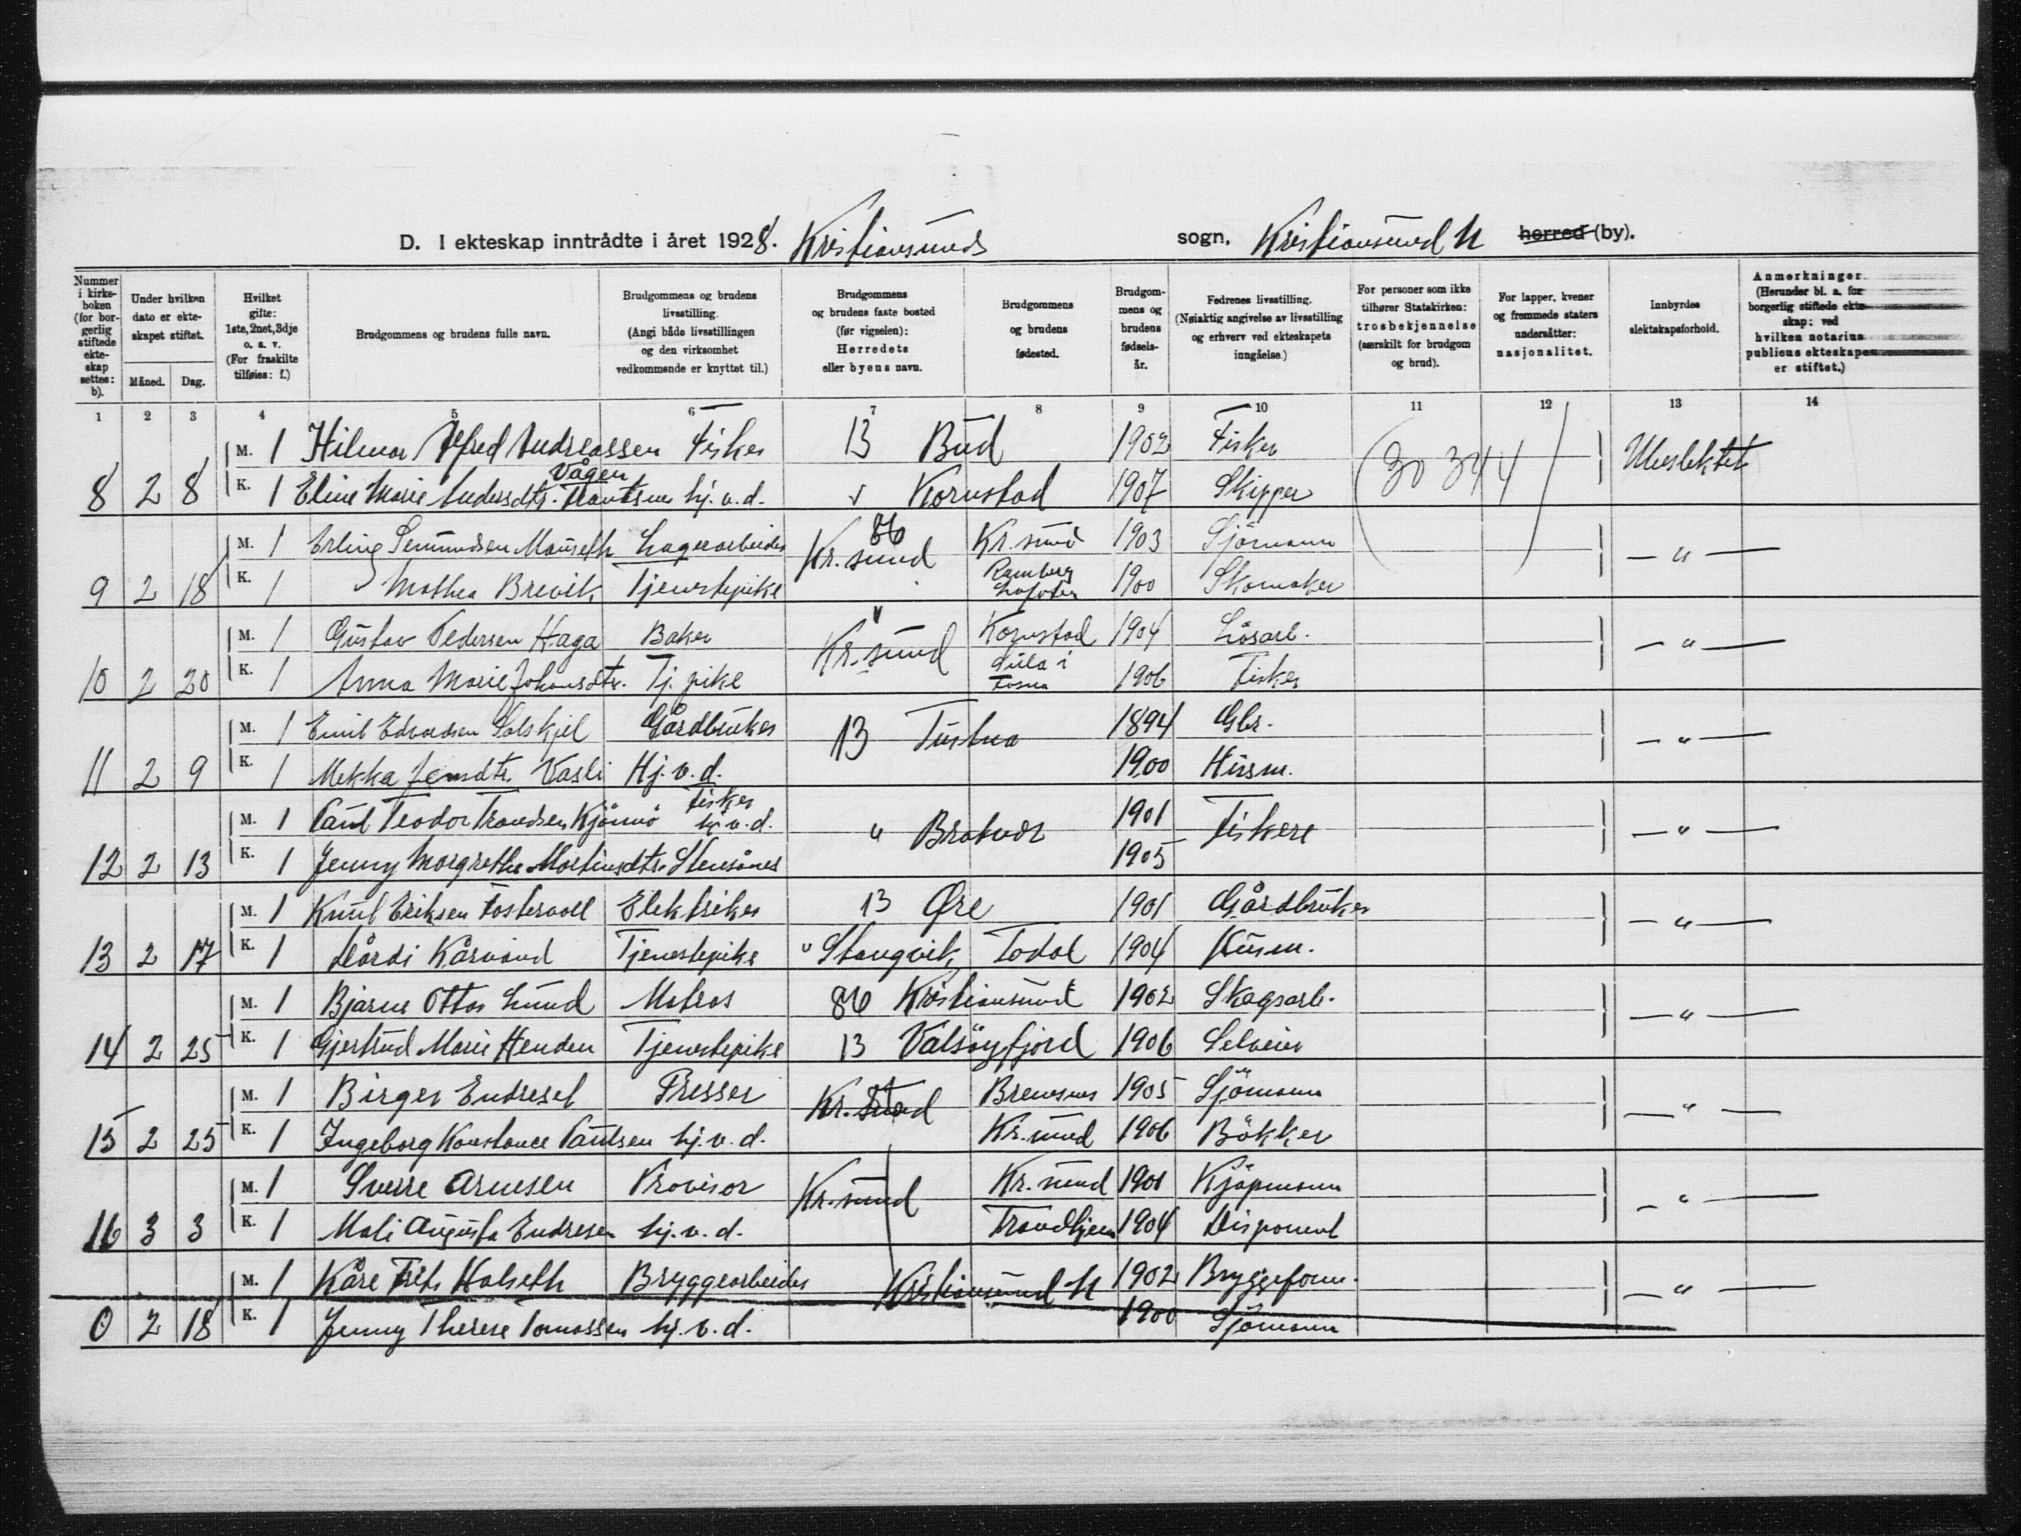 D. I ekteskap inntrådte i året 1928. Kristiansunds sogn, Kristiansund N herred (by).
Nummer i kirkeboken (for borgerlig stiftede ekteskap settes: b).
Under hvilken dato er ekteskapet stiftet.
Måned. Dag.
Hvilket gifte: 1ste, 2net, 3dje o. s. v. (For fraskilte tilføies: f.)
Brudgommens og brudens fulle navn.
Brudgommens og brudens livsstilling. (Angi både livsstillingen og den virksomhet vedkommende er knyttet til.)
Brudgommens og brudens faste bosted (før vigselen): Herredets eller byens navn.
Brudgommens og brudens fødested.
Brudgommens og brudens fødselsår.
Fedrenes livsstilling. (Nøiaktig angivelse av livsstilling og erhverv ved ekteskapets inngåelse.)
For personer som ikke tilhører Statskirken: trosbekjennelse (særskilt for brudgom og brud).
For lapper, kvener og fremmede staters undersåtter: nasjonalitet.
Innbyrdes slektskapsforhold.
Anmerkninger. (Herunder bl. a. for borgerlig stiftede ekteskap: ved hvilken notarius publicus ekteskapet er stiftet.)
1 2 3 4 5 6 7 8 9 10 11 12 13 14
M. 1 Hilmar Alfred Andreassen Fisker 13 Bud 1902 Fisker (30344) Ubeslektet
Vågen
8 2 8 K. 1 Eline Marie Andersdtr. hj.v.d. Kornstad 1907 Skipper
86
M. 1 Erling Semundsen Lagerarbeider Kr.sund Kr.sund 1903 Sjömann — " —
9 2 18 K. 1 Mathea Brevik Tjenestepike Ramberg Lofoten 1900 Skomaker
M. 1 Gustav Pedersen Haga Baker Kr.sund Kornstad 1904 Lösarb. — " —
10 2 20 K. 1 Anna Marie Johansdtr. Tj. pike i 1906 Fisker
M. 1 Emil Edvardsen Solskjel Gårdbruker 13 Tustna 1894 Gbr. — " —
11 2 9 K. 1 Mekka Jensdtr. Vasli Hj.v.d. 1900 Husm.
Fisker
M. 1 Paul Teodor hj.v.d. " Brattvær 1901 Fiskere — " —
12 2 13 K. 1 Jenny Margrethe Martinsdtr. 1905
M. 1 Knut Eriksen Fostervoll Elektriker 13 Øre 1901 Gårdbruker — " —
13 2 17 K. 1 Kårvand Tjenestepike " Stangvik Todal 1904 Husm.
M. 1 Bjarne Ottar Lund Matros 86 Kristiansund 1902 Skogsarb. — " —
14 2 25 K. 1 Gjertrud Marie Henden Tjenestepike 13 Valsöyfjord 1906 Selveier
M. 1 Birger Endreset Presser Kr.sund Bremsnes 1905 Sjömann — " —
15 2 25 K. 1 Ingeborg Konstance Paulsen hj.v.d. Kr.sund 1906 Bökker
M. 1 Sverre Arnesen Provisor Kr.sund Kr.sund 1901 Kjöpmann — " —
16 3 3 K. 1 Mali Augusta Endresen hj.v.d. Trondhjem 1904 Disponent
M. 1 Kåre Frits Halseth Bryggearbeider Kristiansund N 1902 Bryggeform. — " —
0 2 18 K. 1 Jenny Therese Tomassen hj.v.d. 1900 Sjömann